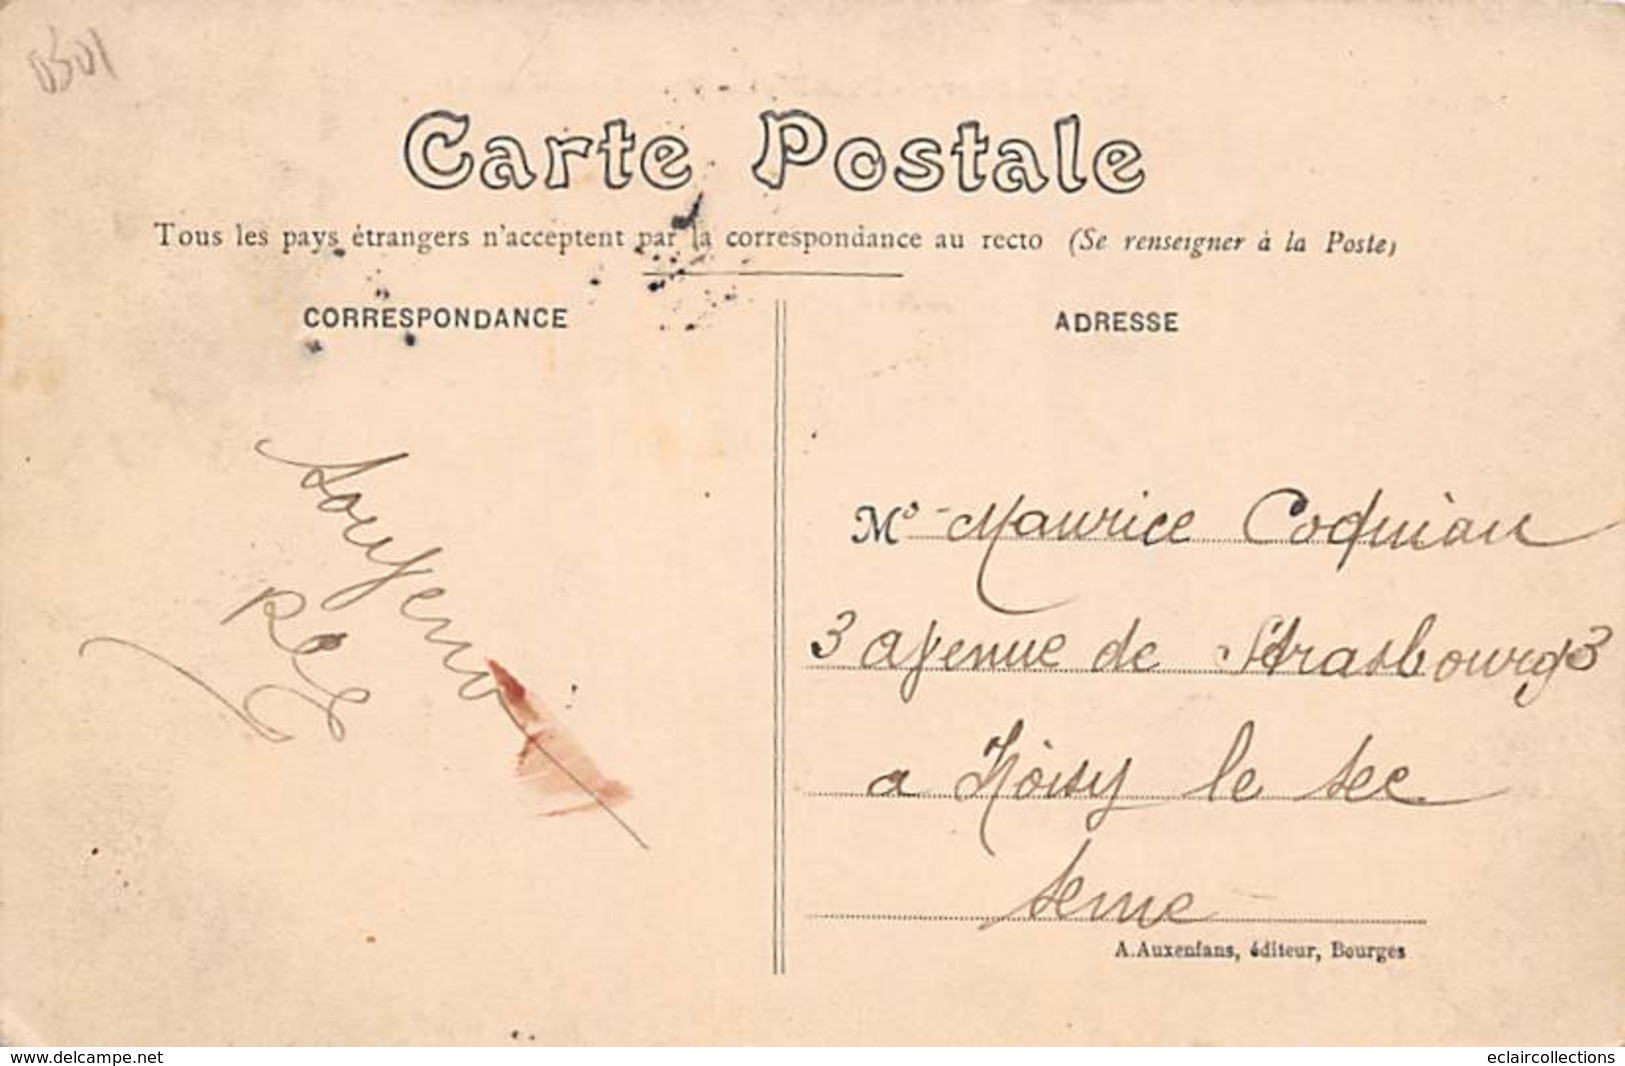 0301
Carte Postale
Tous les pays étrangers n'acceptent par la correspondance au recto (Se renseigner à la Poste)
CORRESPONDANCE
ADRESSE
M Maurice Coquiau
3 avenue de Strasbourg 3
a Noisy le sec
seine
A. Auxenfans, éditeur, Bourges
www.delcampe.net
eclaircollections